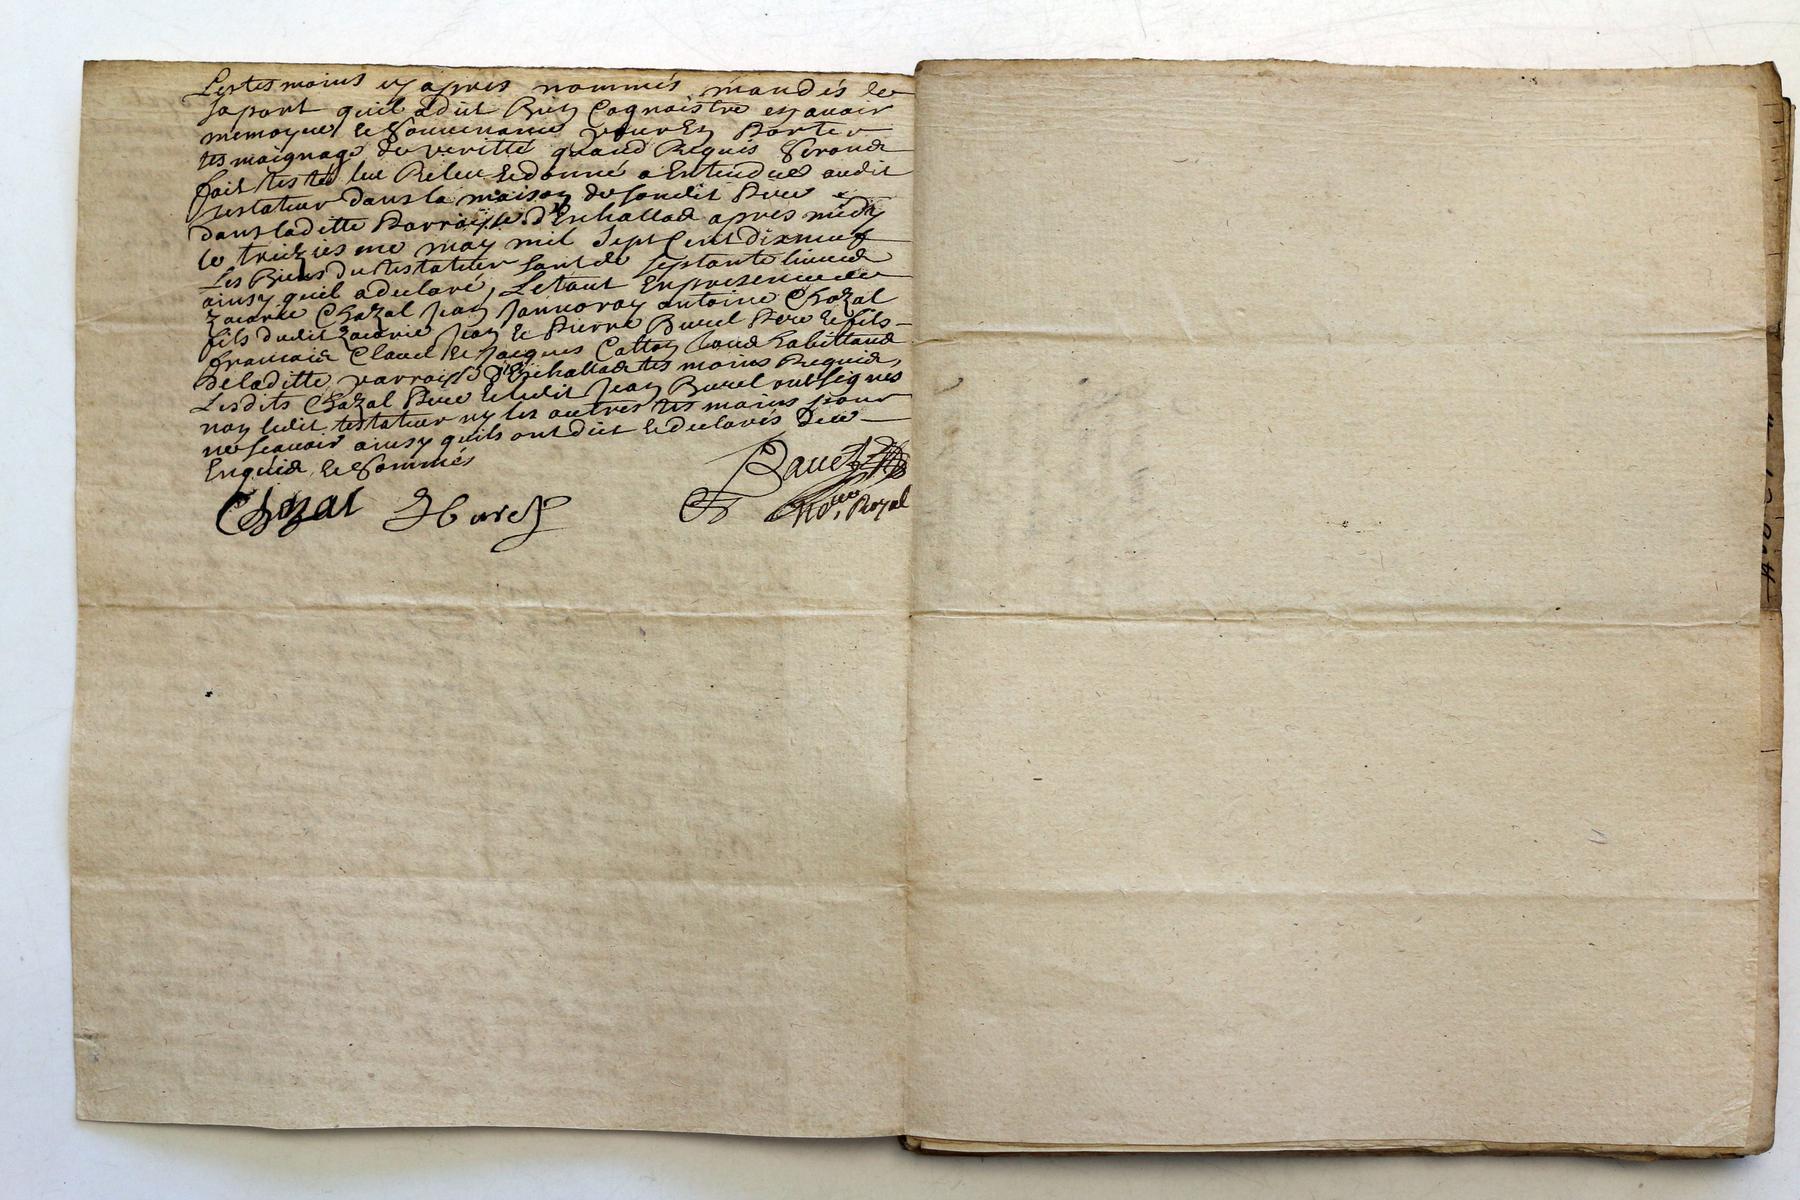 Les tesmoins cy apres nommés mandés de
sa part quil a dit Bien Cognoistre et avoir
memoyre & Souvenance pour En Porter
tesmoignage de veritté quand Requis Seront
fait testé lue Releu & donné a Entendre audit
testateur dans la maison de sondit Pere
dans laditte Parroisse d'Eschallas apres midy
le treiziesme may mil Sept Cent dixneuf
Les Biens du testateur sont de septante livres
ainsy quil a declaré, Le tout En presence de
zacarie Chazal Jean Jannoray antoine Chazal
fils dudit zacarie Jean & Pierre Burel Pere & fils
francois Clavel & Jacques Catton tous habittans
de laditte parroisse d'Eschallas tesmoins Requis,
Lesdits Chazal Pere & ledit Jean Burel ont signes
non ledit testateur ny les autres tesmoins pour
ne scavoir ainsy quils ont dit & declarés de ce
Enquis & Sommés
Chazal J Burel
No.re Royal